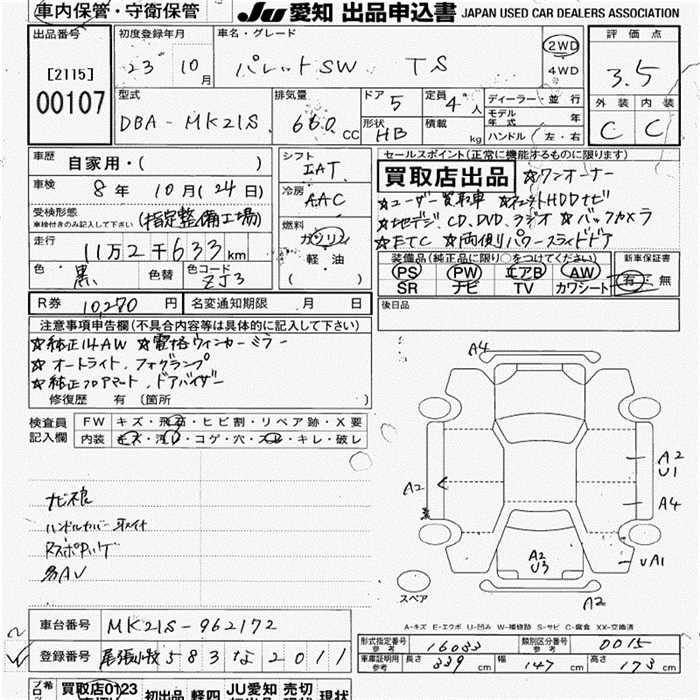 車内保管・守衛保管
JU 愛知 出品申込書 JAPAN USED CAR DEALERS ASSOCIATION
出品番号 初度登録年月 車名・グレード 2WD 評価点
[2115] 23年 10月 パレットSW TS 4WD 3.5
00107 型式 排気量 ドア 5 定員 4人 ディーラー・並行 外装 内装
DBA-MK21S 660cc 形状 HB 積載 kg モデル年式 年 C C
ハンドル(左・右)
車歴 自家用・( ) シフト IAT セールスポイント(正常に機能するものに限ります)
車検 8年 10月(24日) 冷房 AAC 買取店出品 ☆ワンオーナー
受検形態 車検付きのみ記入して下さい (指定整備工場) 燃料 ☆ユーザー買取車 ☆ HDDナビ
走行 11万2千633km ガソリン ☆地デジ、CD、DVD、ラジオ ☆バックカメラ
軽・油 ☆ETC ☆両側パワースライドドア
色 黒 色替 色コード ZJ3 ( ) 装備品(純正品に限り○をつけてください) 新車保証書
PS PW エアB AW 有・無
SR ナビ TV カワシート
R券 10,270円 名変通知期限 月 日 後日品
注意事項申告欄(不具合内容等は具体的に記入して下さい)
☆純正14AW ☆電格ウィンカーミラー
☆オートライト、フォグランプ
☆純正フロアマット、ドアバイザー
修復歴 有 (箇所 )
A4
検査員記入欄 FW キズ・飛石・ヒビ割・リペア跡・X要
内装 キズ・汚レ・コゲ・穴・スレ・キレ・破レ
A2
U1
A2
A4
ハンドルカバー
多AV
A2
U3
UA1
スペア
A2
A-キズ E-エクボ U-凹み W-補修跡 S-サビ C-腐食 XX-交換済
車台番号 MK21S-962172
登録番号 尾張小牧 583 な 2011
型式指定番号 参考 16033 類別区分番号 参考 0015
車庫証明用 参考 長さ 339cm 幅 147cm 高さ 173cm
買取店0123 初出品 軽四 JU愛知 売切 現状